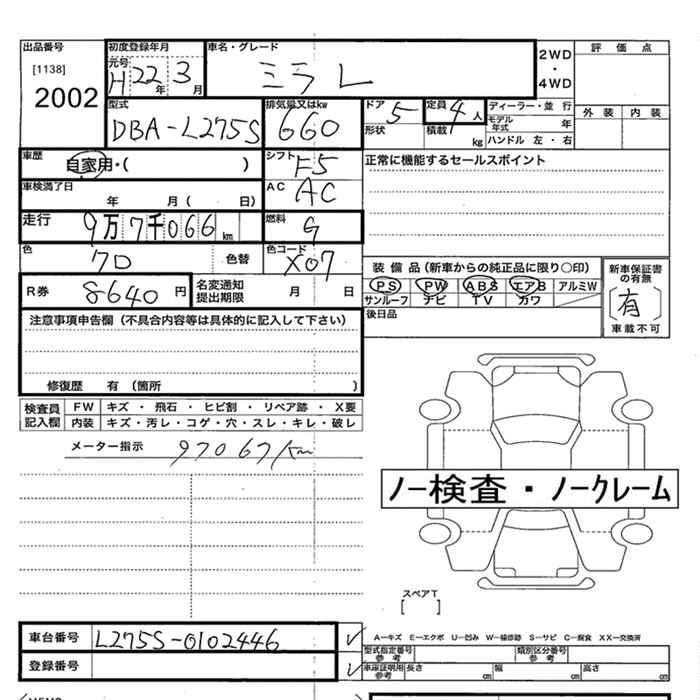 出品番号 初度登録年月 車名・グレード 2WD・4WD 評価点
[1138] 元号 H22年3月 ミラ L
2002
型式 排気量又はkw ドア 5 定員 4人 ディーラー・並行 外装 内装
DBA-L275S 660 形状 積載 kg モデル年式 年
ハンドル 左・右
車歴 自家用・( ) シフト F5 正常に機能するセールスポイント
車検満了日 年 月( 日) AC AC
走行 9万7千066km 燃料 G
色 色替 色コード X07
装備品(新車からの純正品に限り○印) 新車保証書の有無
PS PW ABS エアB アルミW
サンルーフ ナビ TV カワ 〔有〕
R券 8640円 名変通知提出期限 月 日 後日品 車載不可
注意事項申告欄(不具合内容等は具体的に記入して下さい)
修復歴 有(箇所 )
検査員記入欄 FW キズ・飛石・ヒビ割・リペア跡・X要
内装 キズ・汚レ・コゲ・穴・スレ・キレ・破レ
メーター指示 97067km
ノー検査・ノークレーム
スペアT
[ ]
車台番号 L275S-0102446 A-キズ E-エクボ U-凹み W-補修跡 S-サビ C-腐食 XX-交換済
型式指定番号 参考 類別区分番号 参考
登録番号 車庫証明用 参考 長さ cm 幅 cm 高さ cm